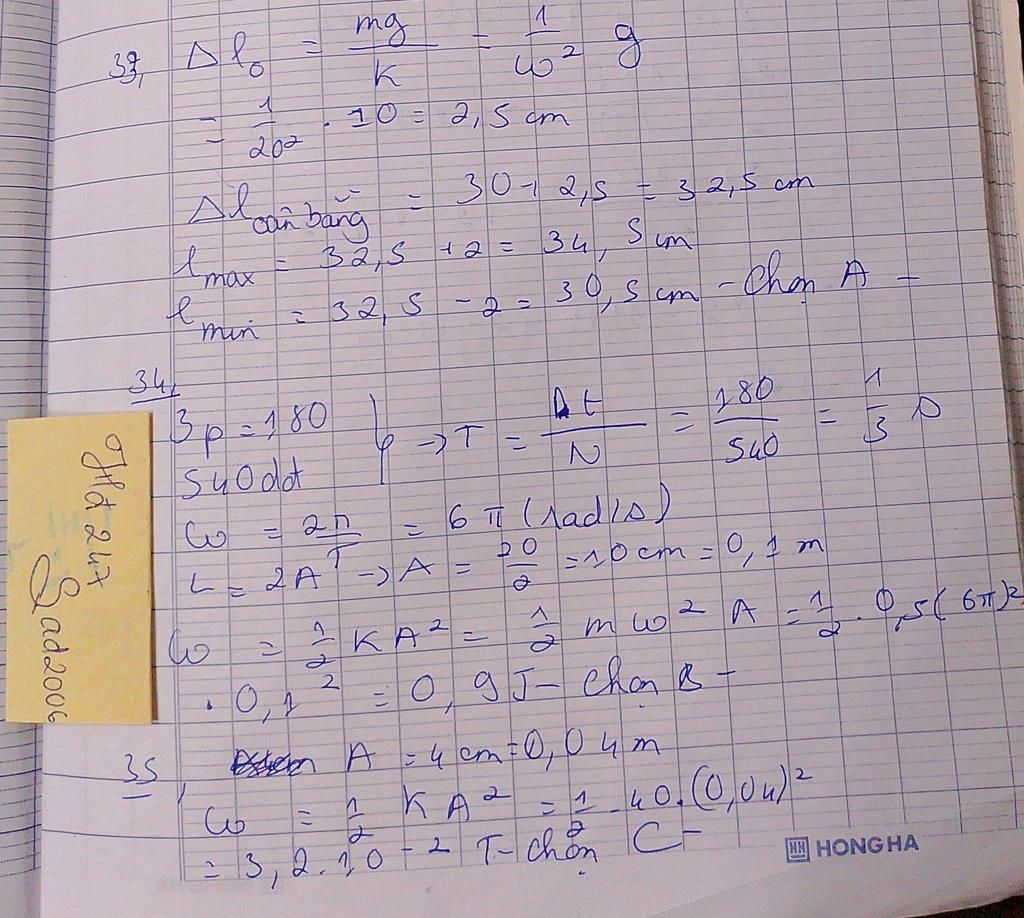 33, Δl₀ = mg/K = 1/ω² g
= 1/20² . 10 = 2,5 cm
Δl cân bằng = 30 + 2,5 = 32,5 cm
lmax = 32,5 + 2 = 34,5 cm
lmin = 32,5 - 2 = 30,5 cm - Chọn A -
34,
3p = 180
540 dđ } → T = Δt/N = 180/540 = 1/3 s
ω = 2π/T = 6π (rad/s)
L = 2A → A = 20/2 = 10 cm = 0,1 m
W = 1/2 KA² = 1/2 mω² A = 1/2 . 0,5(6π)²
. 0,1² = 0,9 J - Chọn B -
35, A = 4 cm = 0,04 m
W = 1/2 KA² = 1/2 . 40.(0,04)²
= 3,2.10⁻² J - chọn C -
Hd247
Sad2006
HH HONG HA